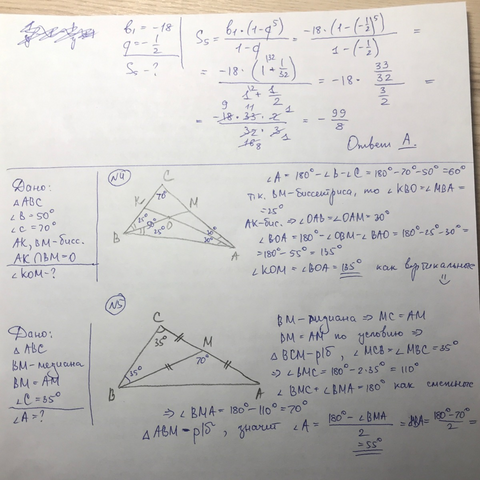 b₁ = -18
q = -1/2
S₅ - ?
S₅ = b₁·(1-q⁵)/(1-q) = -18·(1-(-1/2)⁵)/(1-(-1/2)) =
= -18·(1+1/32)/(1+1/2) = -18·(33/32)/(3/2) =
= -18·33·2/(32·3) = -99/8
Ответ A.
№4
Дано:
△ABC
∠B=50°
∠C=70°
AK, BM-бисс.
AK∩BM=O
∠KOM-?
C
70°
K
M
O
25°
25°
50°
30°
30°
B
A
∠A = 180°-∠B-∠C = 180°-70°-50° = 60°
т.к. BM-биссектриса, то ∠KBO = ∠MBA =
= 25°
AK-бис. ⇒ ∠OAB = ∠OAM = 30°
∠BOA = 180° - ∠OBM - ∠BAO = 180°-25°-30° =
= 180°-55° = 135°
∠KOM = ∠BOA = 135° как вертикальные
№5
Дано:
△ABC
BM-медиана
BM = AM
∠C = 35°
∠A = ?
C
35°
M
70°
35°
B
A
BM-медиана ⇒ MC = AM
BM = AM по условию ⇒
△BCM-р/б, ∠MCB = ∠MBC = 35°
⇒ ∠BMC = 180°-2·35° = 110°
∠BMC + ∠BMA = 180° как смежные
⇒ ∠BMA = 180°-110° = 70°
△ABM-р/б, значит ∠A = (180°-∠BMA)/2 = (180°-70°)/2 =
= 55°